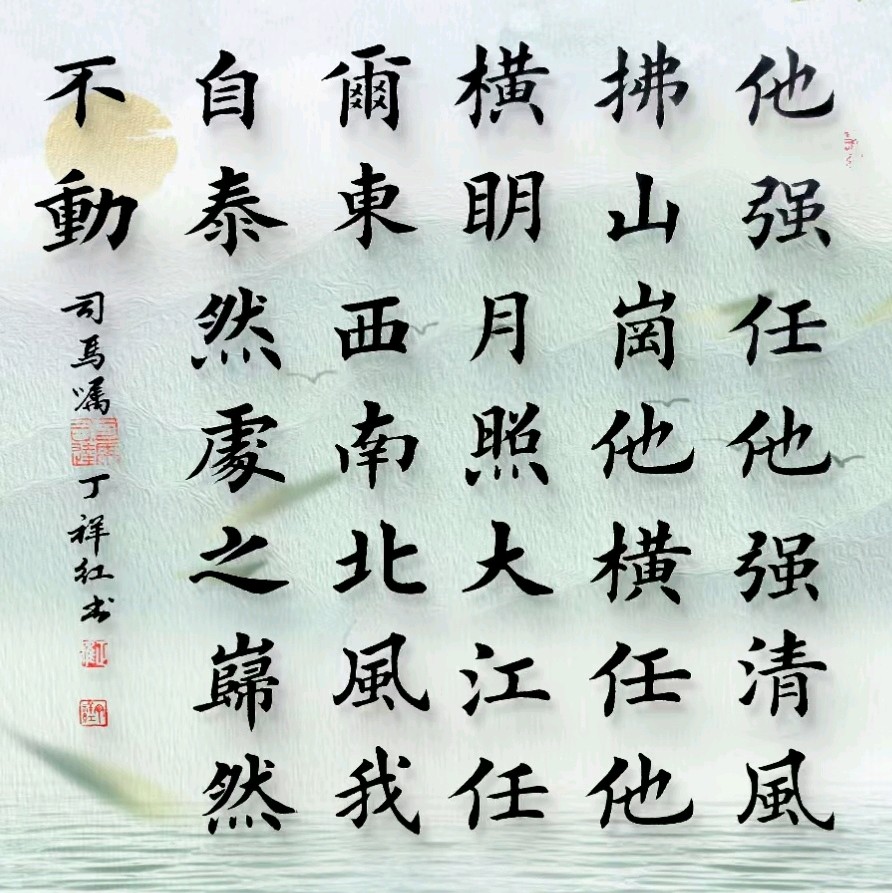 他强任他强清風
拂山崗他橫任他
橫明月照大江任
爾東西南北風我
自泰然處之巋然
不動
司马嘱
丁祥红书